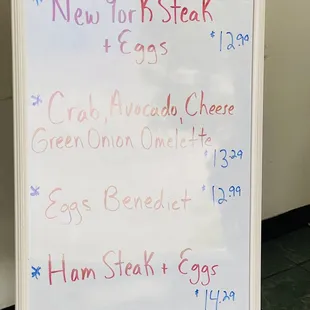 * New York Steak
+ Eggs $12.99
* Crab, Avocado, Cheese
Green Onion Omelette
$13.29
* Eggs Benedict $12.99
* Ham Steak + Eggs
$14.29